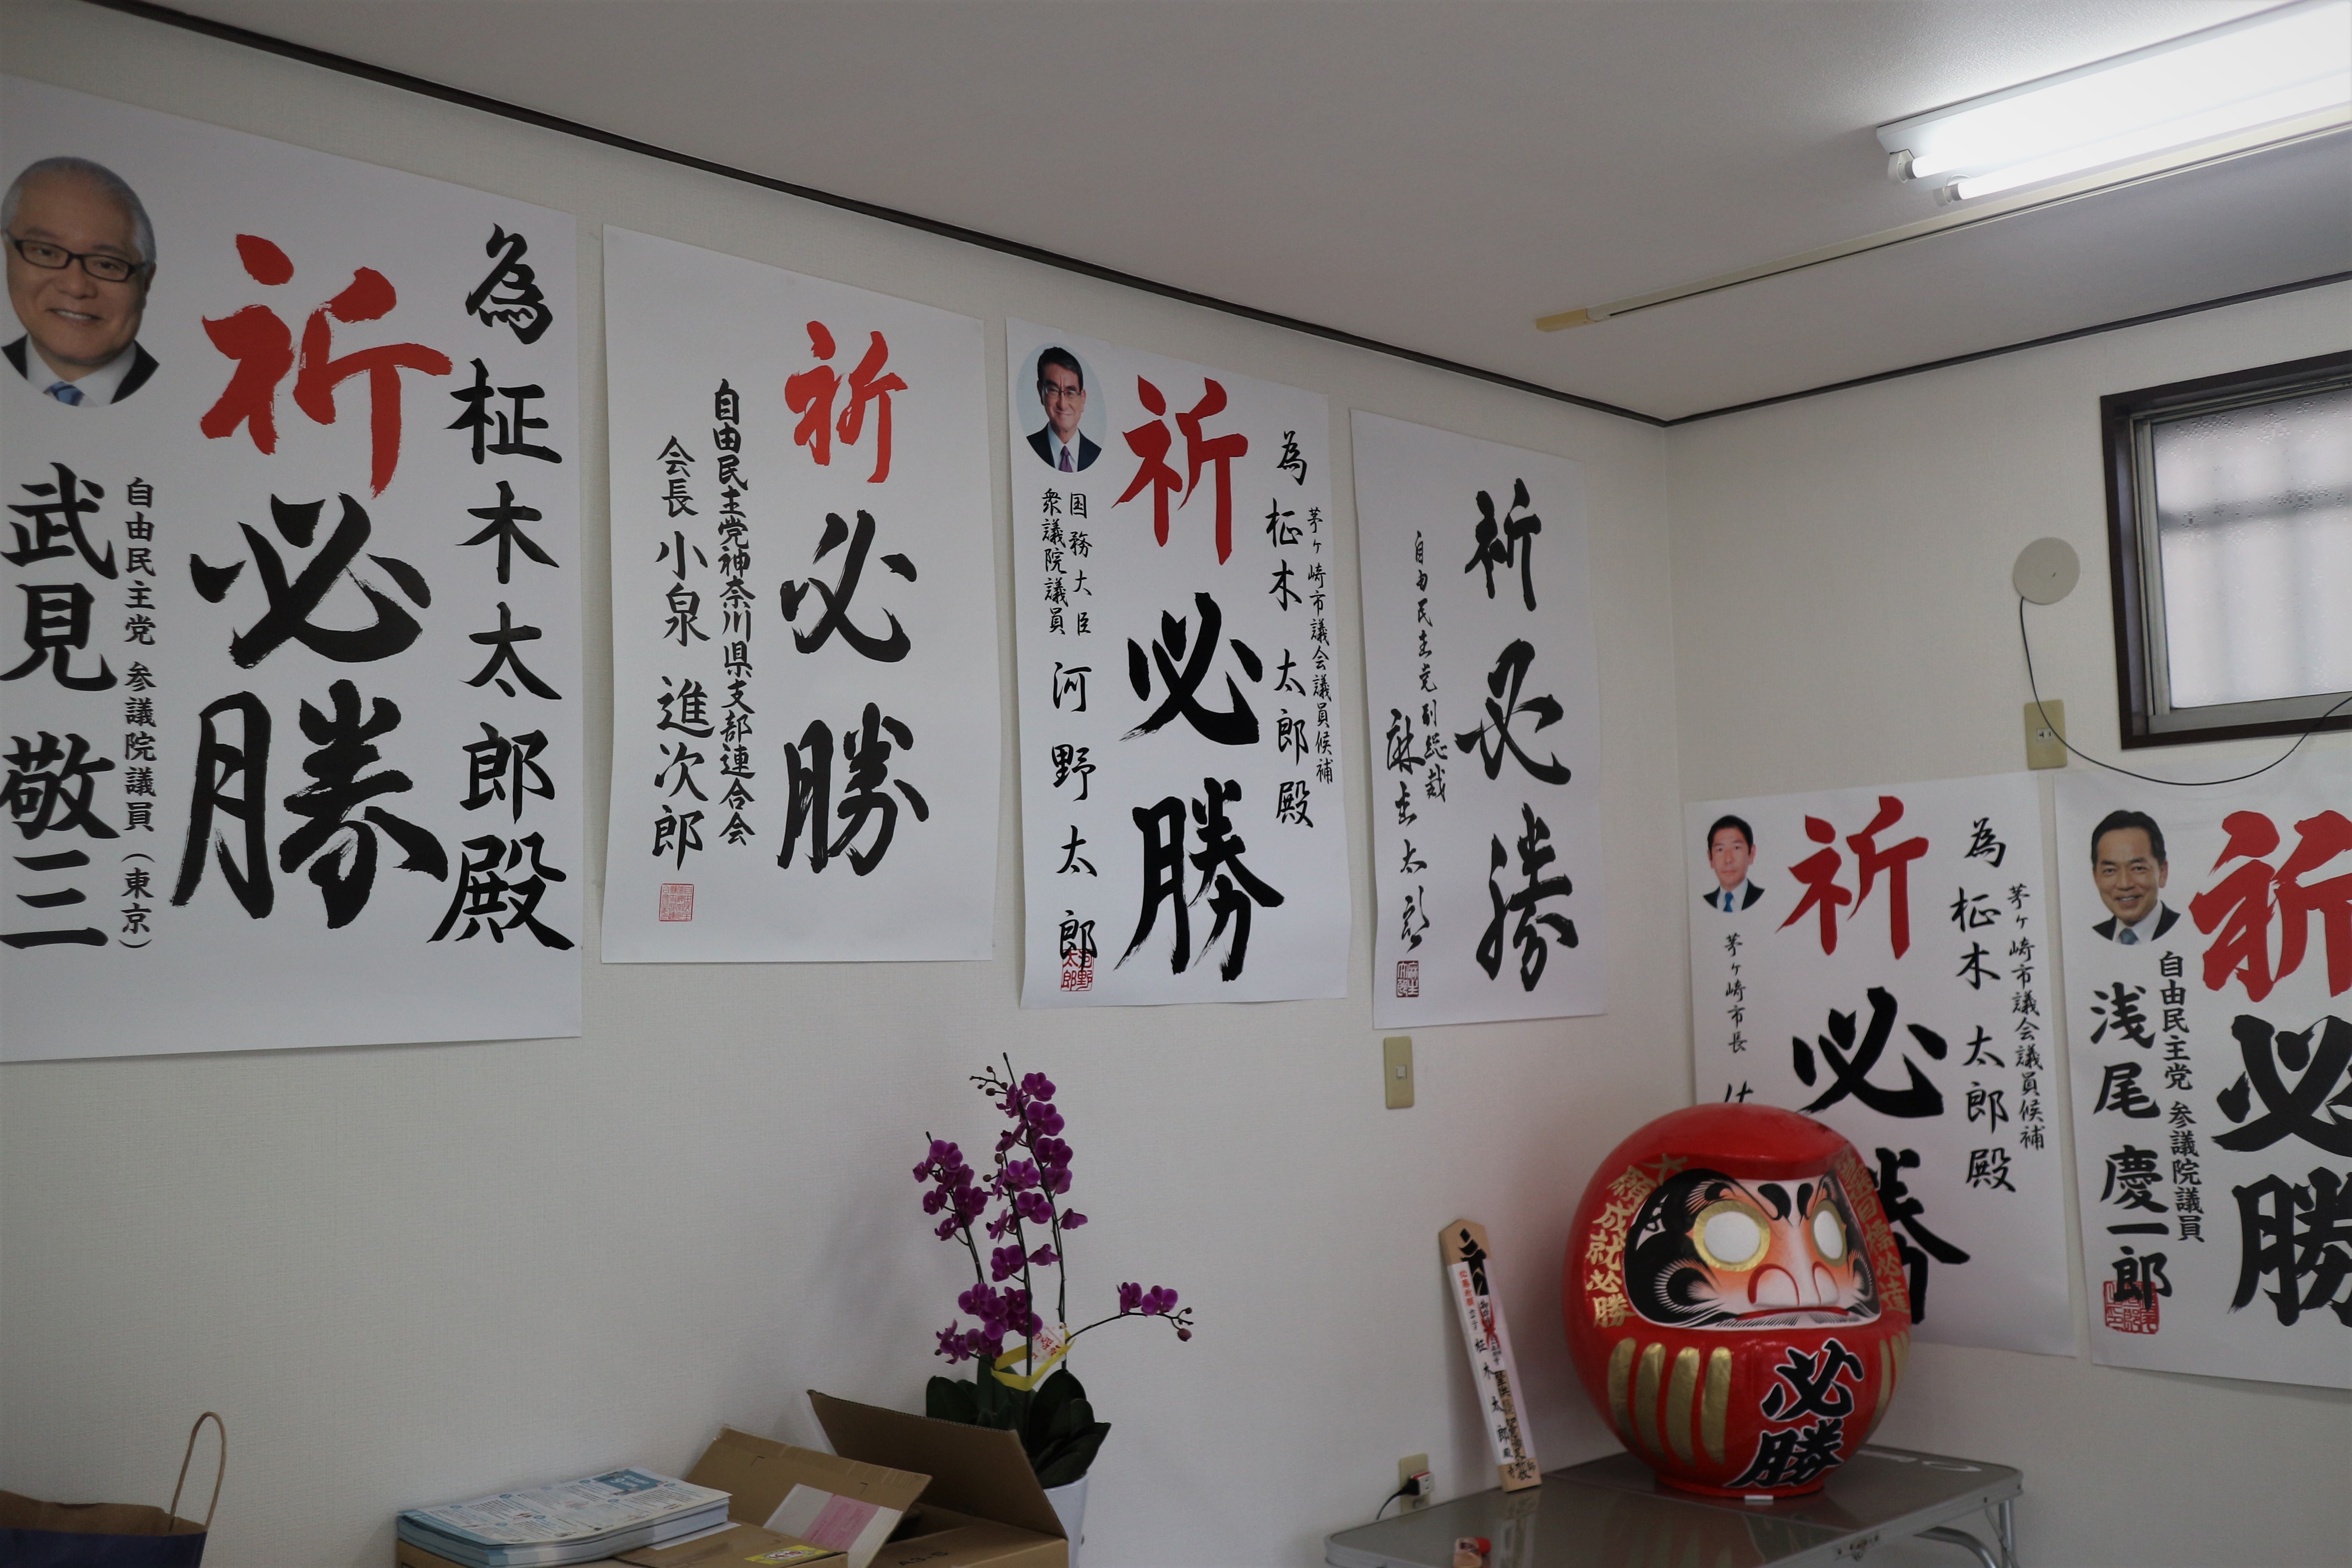 為柾木太郎殿
祈必勝
自由民主党 参議院議員（東京）
武見敬三
祈必勝
自由民主党神奈川県支部連合会
会長 小泉進次郎
茅ヶ崎市議会議員候補
為柾木太郎殿
祈必勝
国務大臣
衆議院議員
河野太郎
河野太郎
祈必勝
自由民主党副総裁
麻生太郎
茅ヶ崎市議会議員候補
為柾木太郎殿
祈必勝
茅ヶ崎市長
祈必勝
自由民主党 参議院議員
浅尾慶一郎
成就必勝
必勝
柾木太郎
A3-5